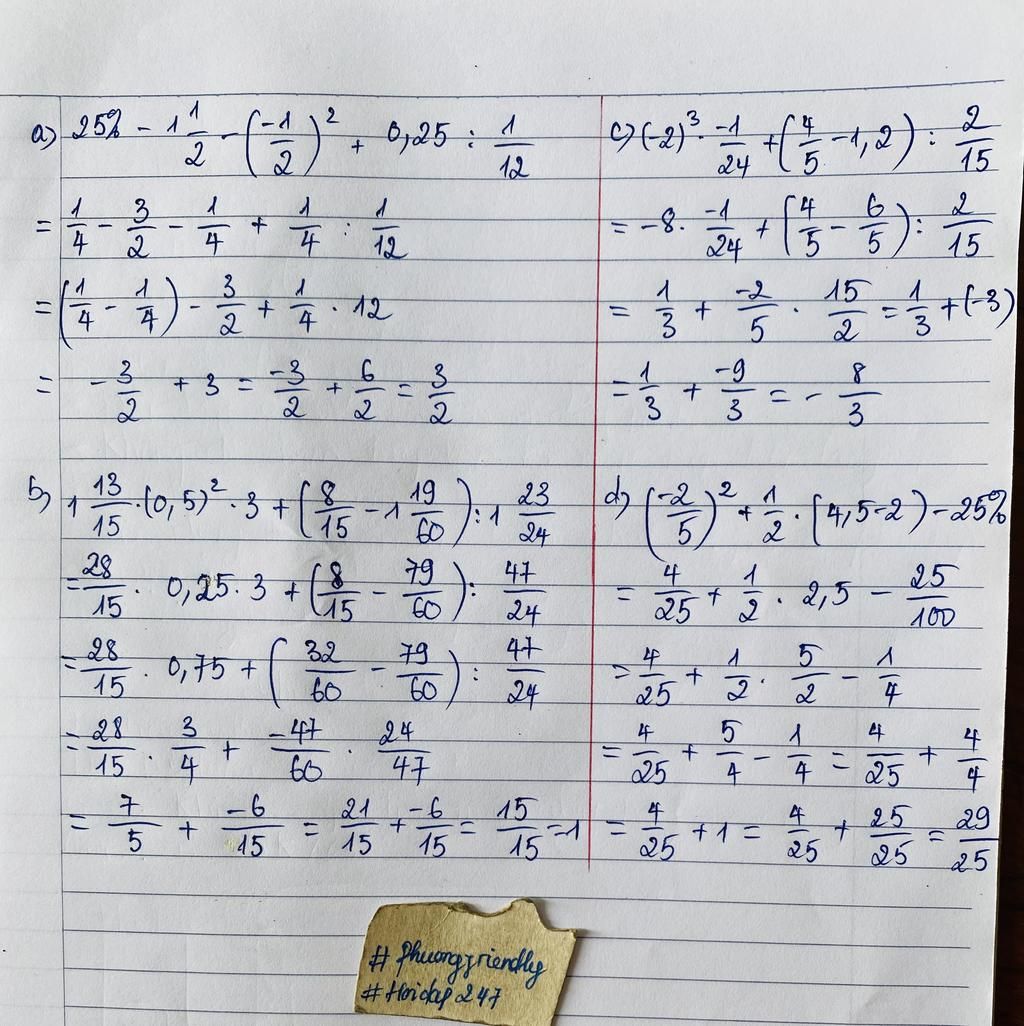 a) 25% - 1 1/2 - (-1/2)² + 0,25 : 1/12
= 1/4 - 3/2 - 1/4 + 1/4 : 1/12
= (1/4 - 1/4) - 3/2 + 1/4 · 12
= -3/2 + 3 = -3/2 + 6/2 = 3/2
b) 1 13/15 · (0,5)² · 3 + (8/15 - 1 19/60) : 1 23/24
= 28/15 · 0,25 · 3 + (8/15 - 79/60) : 47/24
= 28/15 · 0,75 + (32/60 - 79/60) : 47/24
= 28/15 · 3/4 + -47/60 · 24/47
= 7/5 + -6/15 = 21/15 + -6/15 = 15/15 = 1
c) (-2)³ · -1/24 + (4/5 - 1,2) : 2/15
= -8 · -1/24 + (4/5 - 6/5) : 2/15
= 1/3 + -2/5 · 15/2 = 1/3 + (-3)
= 1/3 + -9/3 = - 8/3
d) (-2/5)² + 1/2 · (4,5 - 2) - 25%
= 4/25 + 1/2 · 2,5 - 25/100
= 4/25 + 1/2 · 5/2 - 1/4
= 4/25 + 5/4 - 1/4 = 4/25 + 4/4
= 4/25 + 1 = 4/25 + 25/25 = 29/25
# Phuongfriendly
# Hoidap 247